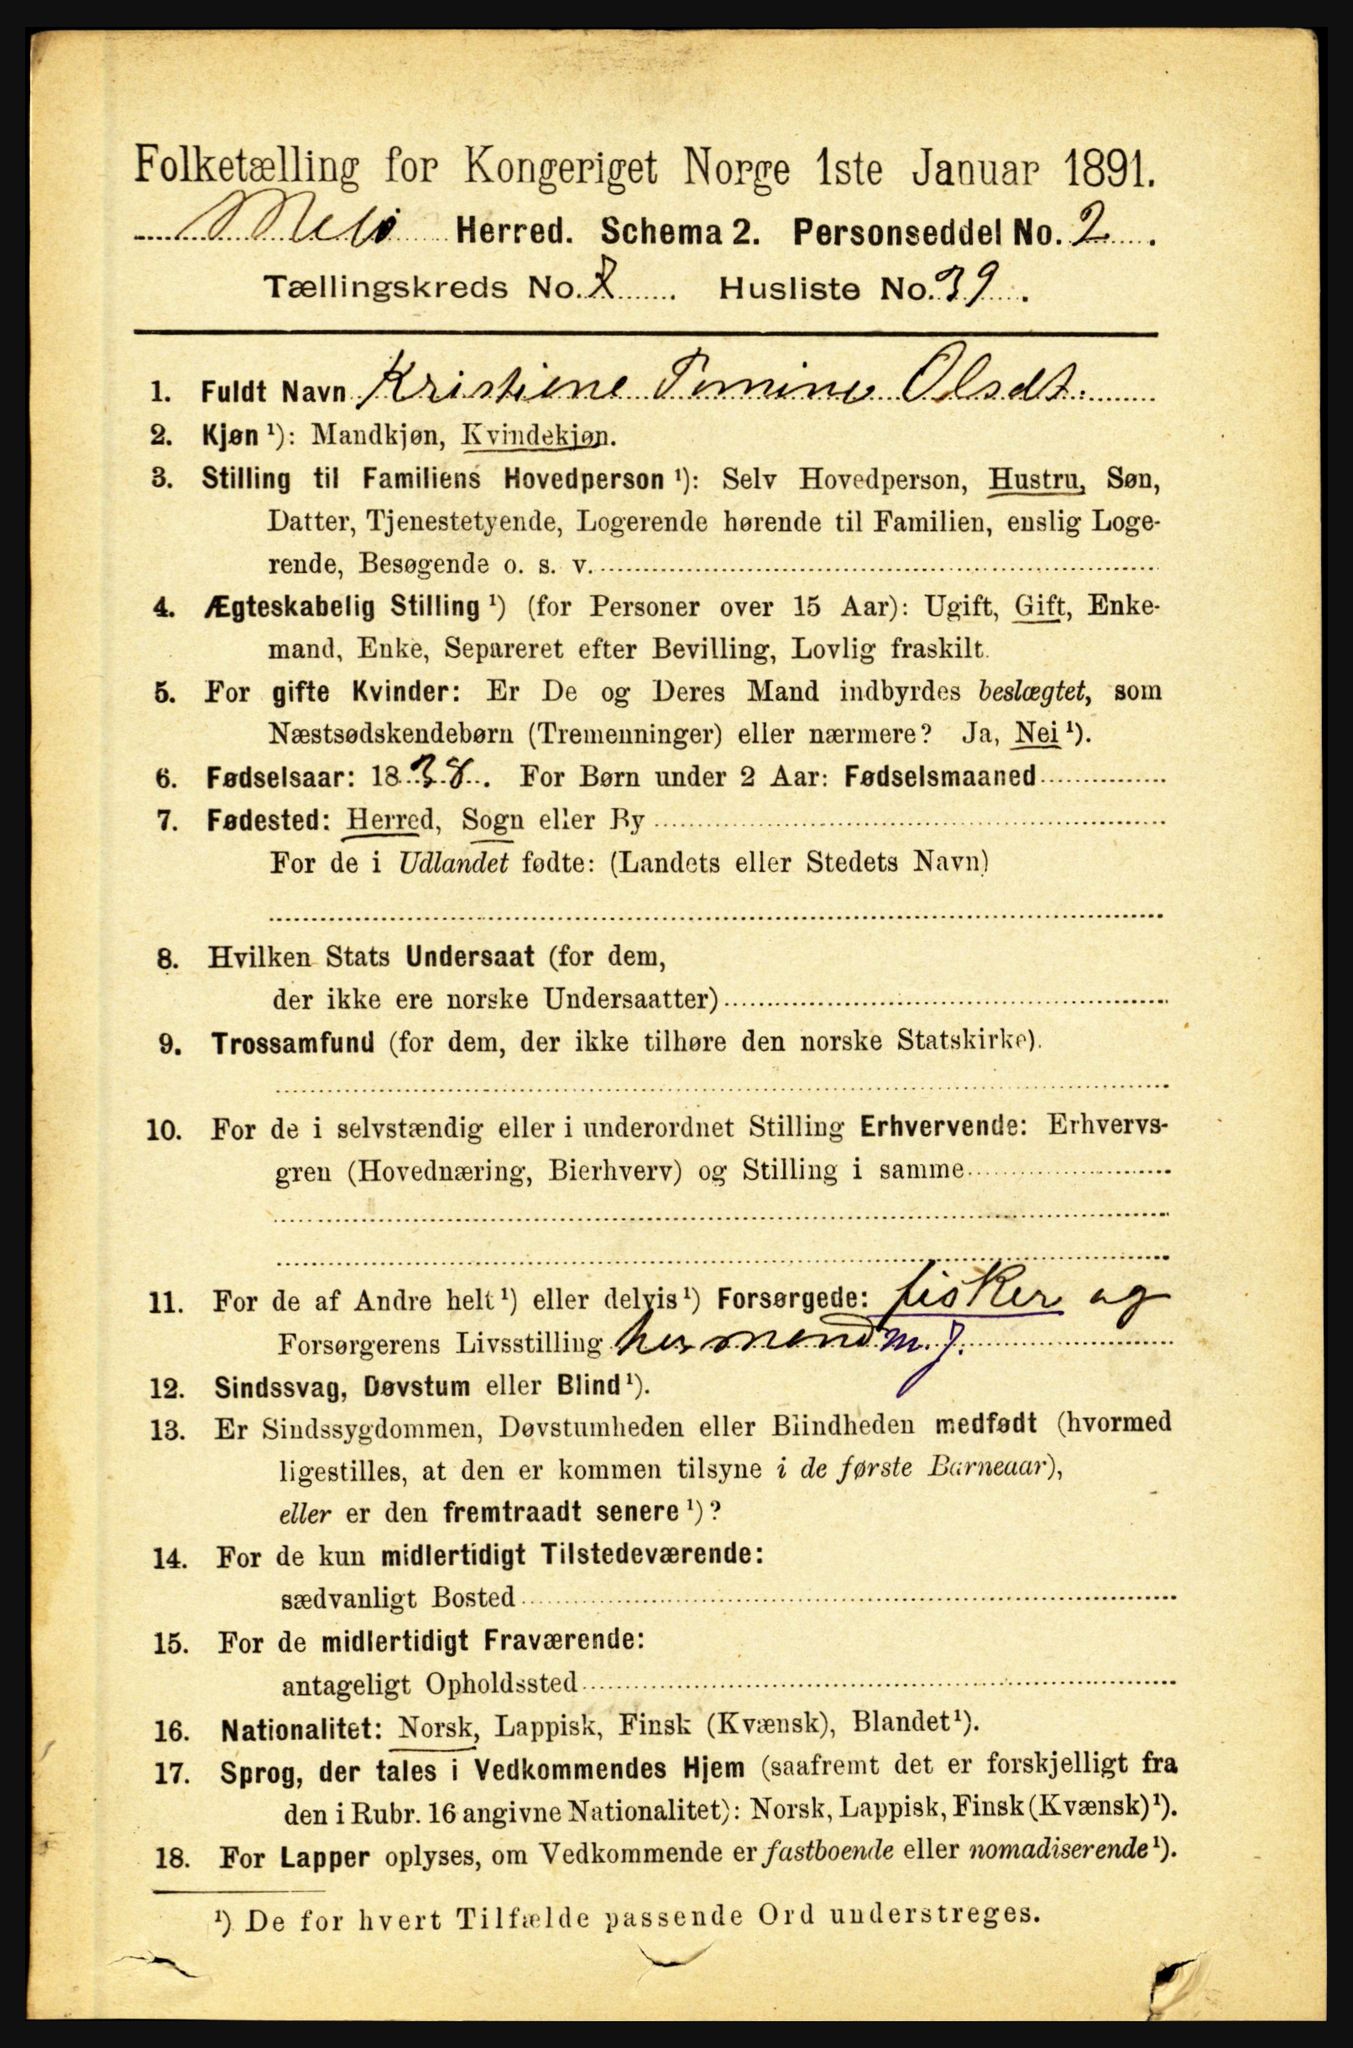 Folketælling for Kongeriget Norge 1ste Januar 1891.
Melø Herred. Schema 2. Personseddel No. 2.
Tællingskreds No. 8. Husliste No. 39.
1. Fuldt Navn Kristiene Tomine Olsdt.
2. Kjøn ¹): Mandkjøn, Kvindekjøn.
3. Stilling til Familiens Hovedperson ¹): Selv Hovedperson, Hustru, Søn,
Datter, Tjenestetyende, Logerende hørende til Familien, enslig Loge-
rende, Besøgende o. s. v.
4. Ægteskabelig Stilling ¹) (for Personer over 15 Aar): Ugift, Gift, Enke-
mand, Enke, Separeret efter Bevilling, Lovlig fraskilt.
5. For gifte Kvinder: Er De og Deres Mand indbyrdes beslægtet, som
Næstsødskendebørn (Tremenninger) eller nærmere? Ja, Nei ¹).
6. Fødselsaar: 1838. For Børn under 2 Aar: Fødselsmaaned
7. Fødested: Herred, Sogn eller By
For de i Udlandet fødte: (Landets eller Stedets Navn)
8. Hvilken Stats Undersaat (for dem,
der ikke ere norske Undersaatter)
9. Trossamfund (for dem, der ikke tilhøre den norske Statskirke).
10. For de i selvstændig eller i underordnet Stilling Erhvervende: Erhvervs-
gren (Hovednæring, Bierhverv) og Stilling i samme
11. For de af Andre helt ¹) eller delvis ¹) Forsørgede: fisker og
Forsørgerens Livsstilling husmand m. J.
12. Sindssvag, Døvstum eller Blind ¹).
13. Er Sindssygdommen, Døvstumheden eller Blindheden medfødt (hvormed
ligestilles, at den er kommen tilsyne i de første Barneaar),
eller er den fremtraadt senere ¹)?
14. For de kun midlertidigt Tilstedeværende:
sædvanligt Bosted
15. For de midlertidigt Fraværende:
antageligt Opholdssted
16. Nationalitet: Norsk, Lappisk, Finsk (Kvænsk), Blandet ¹).
17. Sprog, der tales i Vedkommendes Hjem (saafremt det er forskjelligt fra
den i Rubr. 16 angivne Nationalitet): Norsk, Lappisk, Finsk (Kvænsk) ¹).
18. For Lapper oplyses, om Vedkommende er fastboende eller nomadiserende ¹).
¹) De for hvert Tilfælde passende Ord understreges.